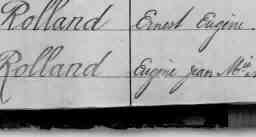 Rolland Ernest Eugène.
Rolland Eugène Jean M